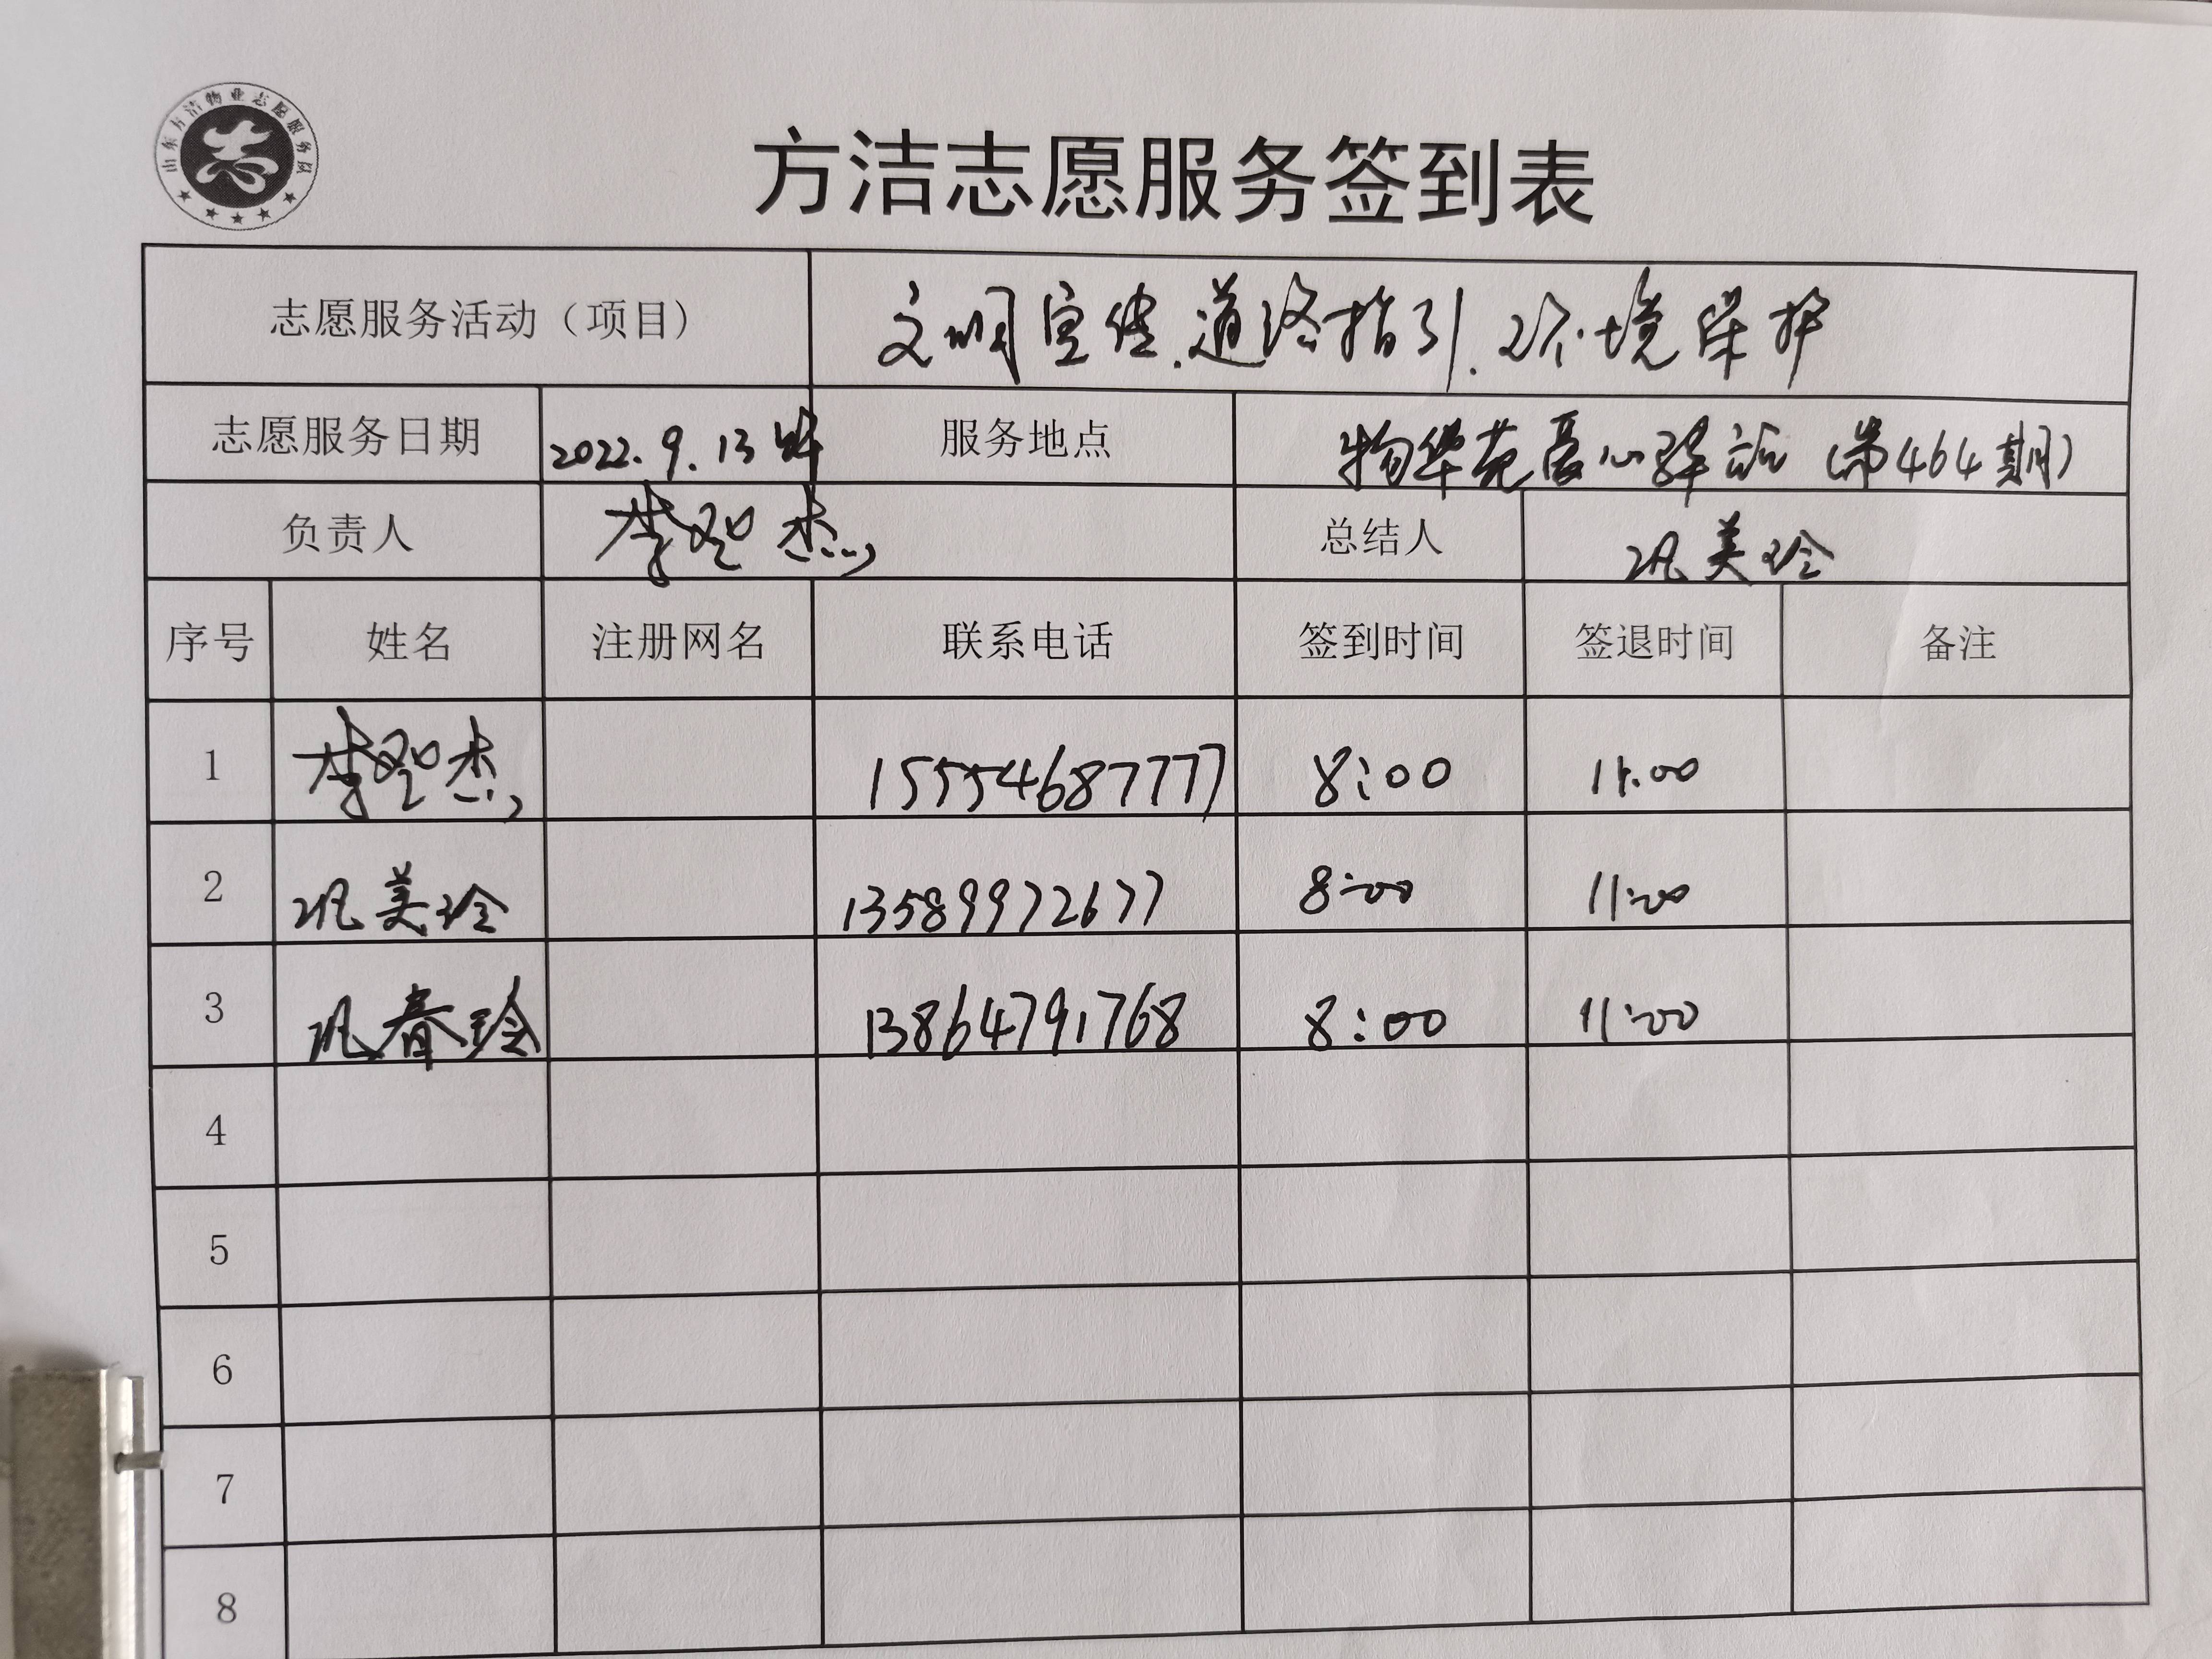 山东方洁物业志愿服务队
方洁志愿服务签到表
志愿服务活动（项目） 文明宣传.道路指引.环境保护
志愿服务日期 2022.9.13 服务地点 物华苑爱心驿站（第464期）
负责人 李 杰 总结人 巩美玲
序号 姓名 注册网名 联系电话 签到时间 签退时间 备注
1 李 杰 15554687777 8:00 11:00
2 巩美玲 13589972677 8:00 11:00
3 巩春玲 13864791768 8:00 11:00
4
5
6
7
8